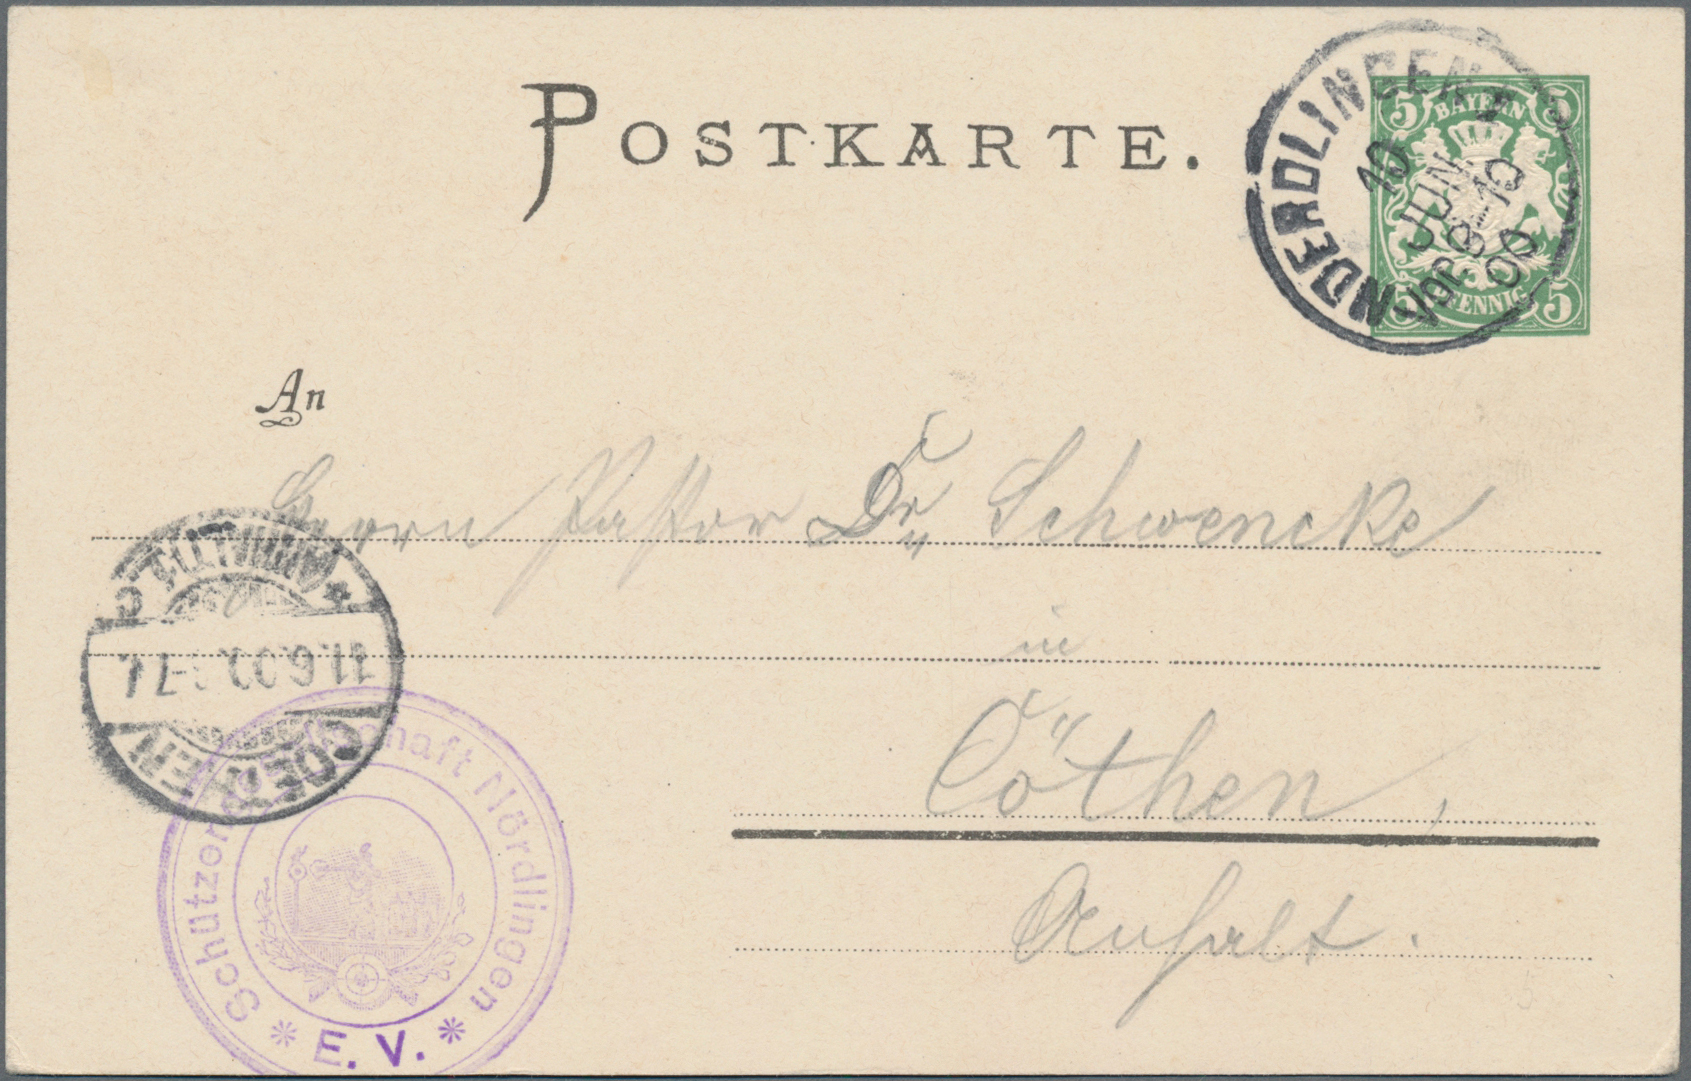 POSTKARTE.
5 BAYERN 5
5 PFENNIG 5
NOERDLINGEN
10
JUN
Vor 9-10
00
An
Herrn Pastor Dr. Schwencke
in
Cöthen,
Anhalt.
11.6.00.
Schützengesellschaft Nördlingen
* E. V. *